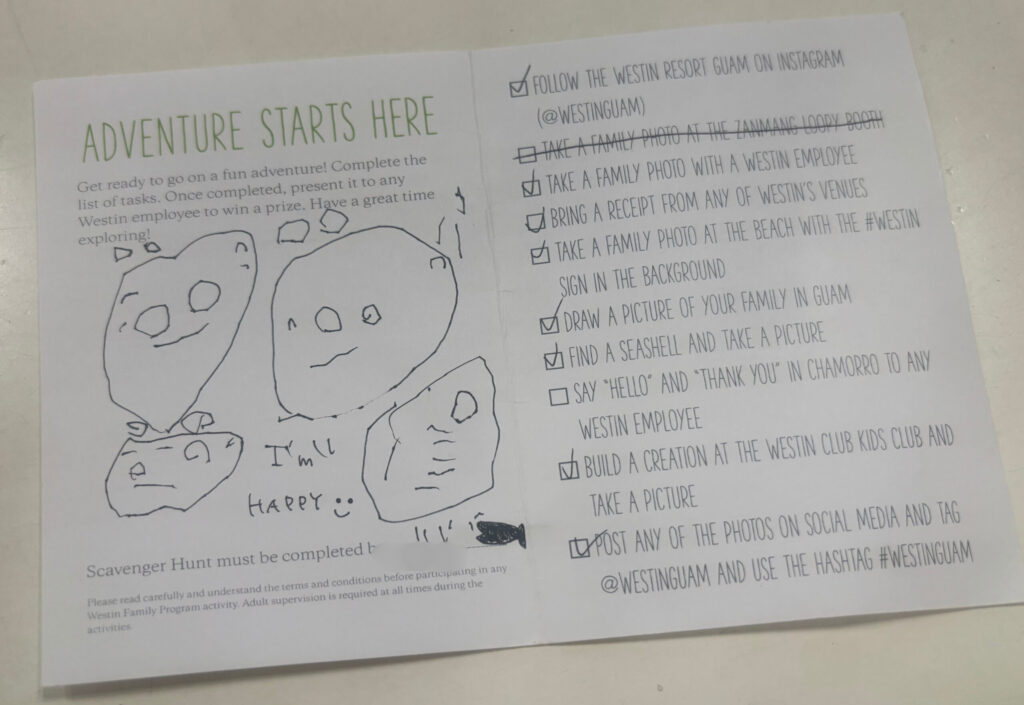 ADVENTURE STARTS HERE
Get ready to go on a fun adventure! Complete the
list of tasks. Once completed, present it to any
Westin employee to win a prize. Have a great time
exploring!
I'm
HAPPY
Scavenger Hunt must be completed b
Please read carefully and understand the terms and conditions before participating in any
Westin Family Program activity. Adult supervision is required at all times during the
activities.
FOLLOW THE WESTIN RESORT GUAM ON INSTAGRAM
(@WESTINGUAM)
TAKE A FAMILY PHOTO AT THE ZANMANG LOOPY BOOTH
TAKE A FAMILY PHOTO WITH A WESTIN EMPLOYEE
BRING A RECEIPT FROM ANY OF WESTIN'S VENUES
TAKE A FAMILY PHOTO AT THE BEACH WITH THE #WESTIN
SIGN IN THE BACKGROUND
DRAW A PICTURE OF YOUR FAMILY IN GUAM
FIND A SEASHELL AND TAKE A PICTURE
SAY "HELLO" AND "THANK YOU" IN CHAMORRO TO ANY
WESTIN EMPLOYEE
BUILD A CREATION AT THE WESTIN CLUB KIDS CLUB AND
TAKE A PICTURE
POST ANY OF THE PHOTOS ON SOCIAL MEDIA AND TAG
@WESTINGUAM AND USE THE HASHTAG #WESTINGUAM